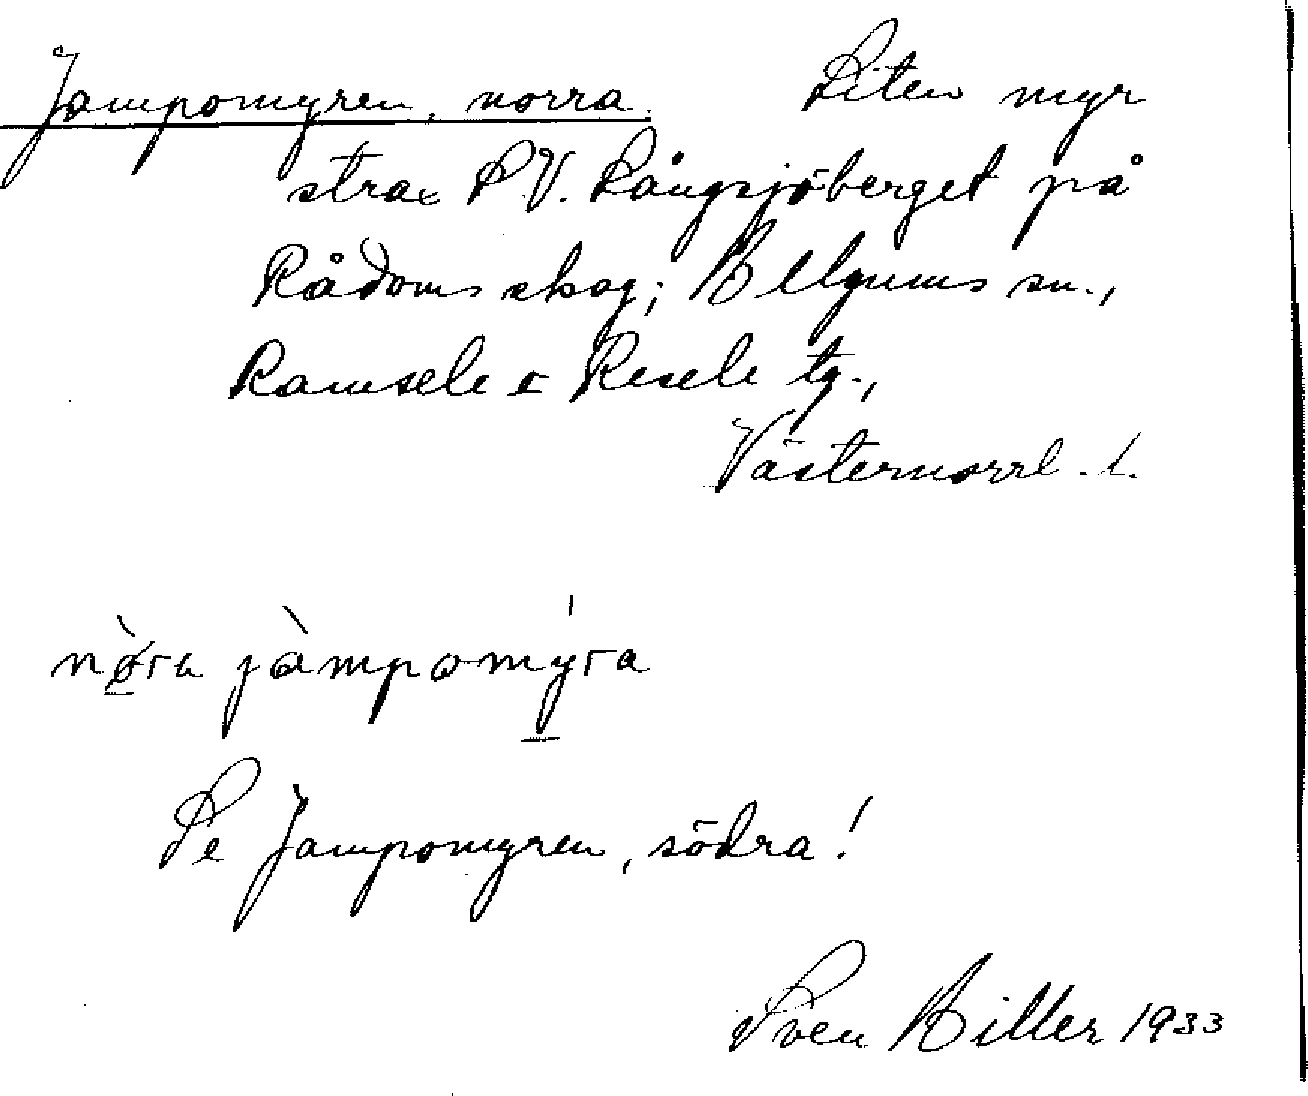 Jampomyren, norra. Liten myr
strax S.V. Långsjöberget på
Rådoms skog; Helgums sn.,
Ramsele o Resele tg.,
Västernorrl. l.
nø̀ra jàmpomýra
Se Jampomyren, södra!
Sven Hiller 1933